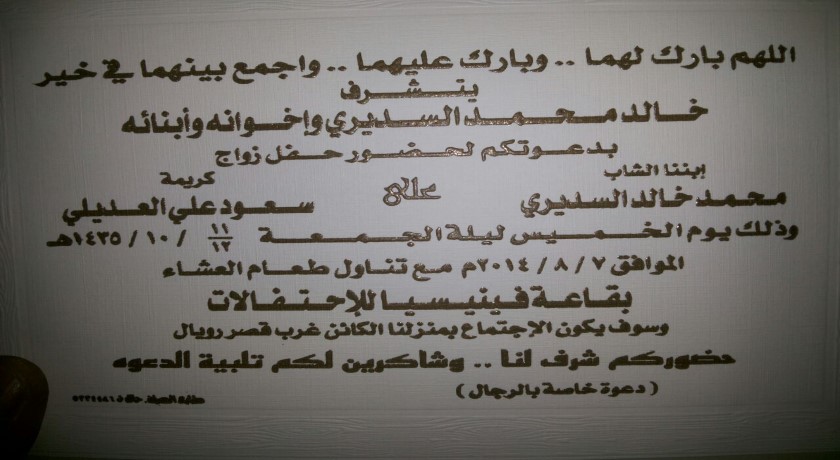 اللهم بارك لهما .. وبارك عليهما .. واجمع بينهما في خير
يتشرف
خالد محمد السديري وإخوانه وأبنائه
بدعوتكم لحضور حفل زواج
إبننا الشاب
كريمة
محمد خالد السديري
على
سعود علي العديلي
وذلك يوم الخميس ليلة الجمعة ١١/١٢ / ١٠ / ١٤٣٥هـ
الموافق ٧ / ٨ / ٢٠١٤م مع تناول طعام العشاء
بقاعة فينيسيا للإحتفالات
وسوف يكون الإجتماع بمنزلنا الكائن غرب قصر رويال
حضوركم شرف لنا .. وشاكرين لكم تلبية الدعوه
(دعوة خاصة بالرجال)